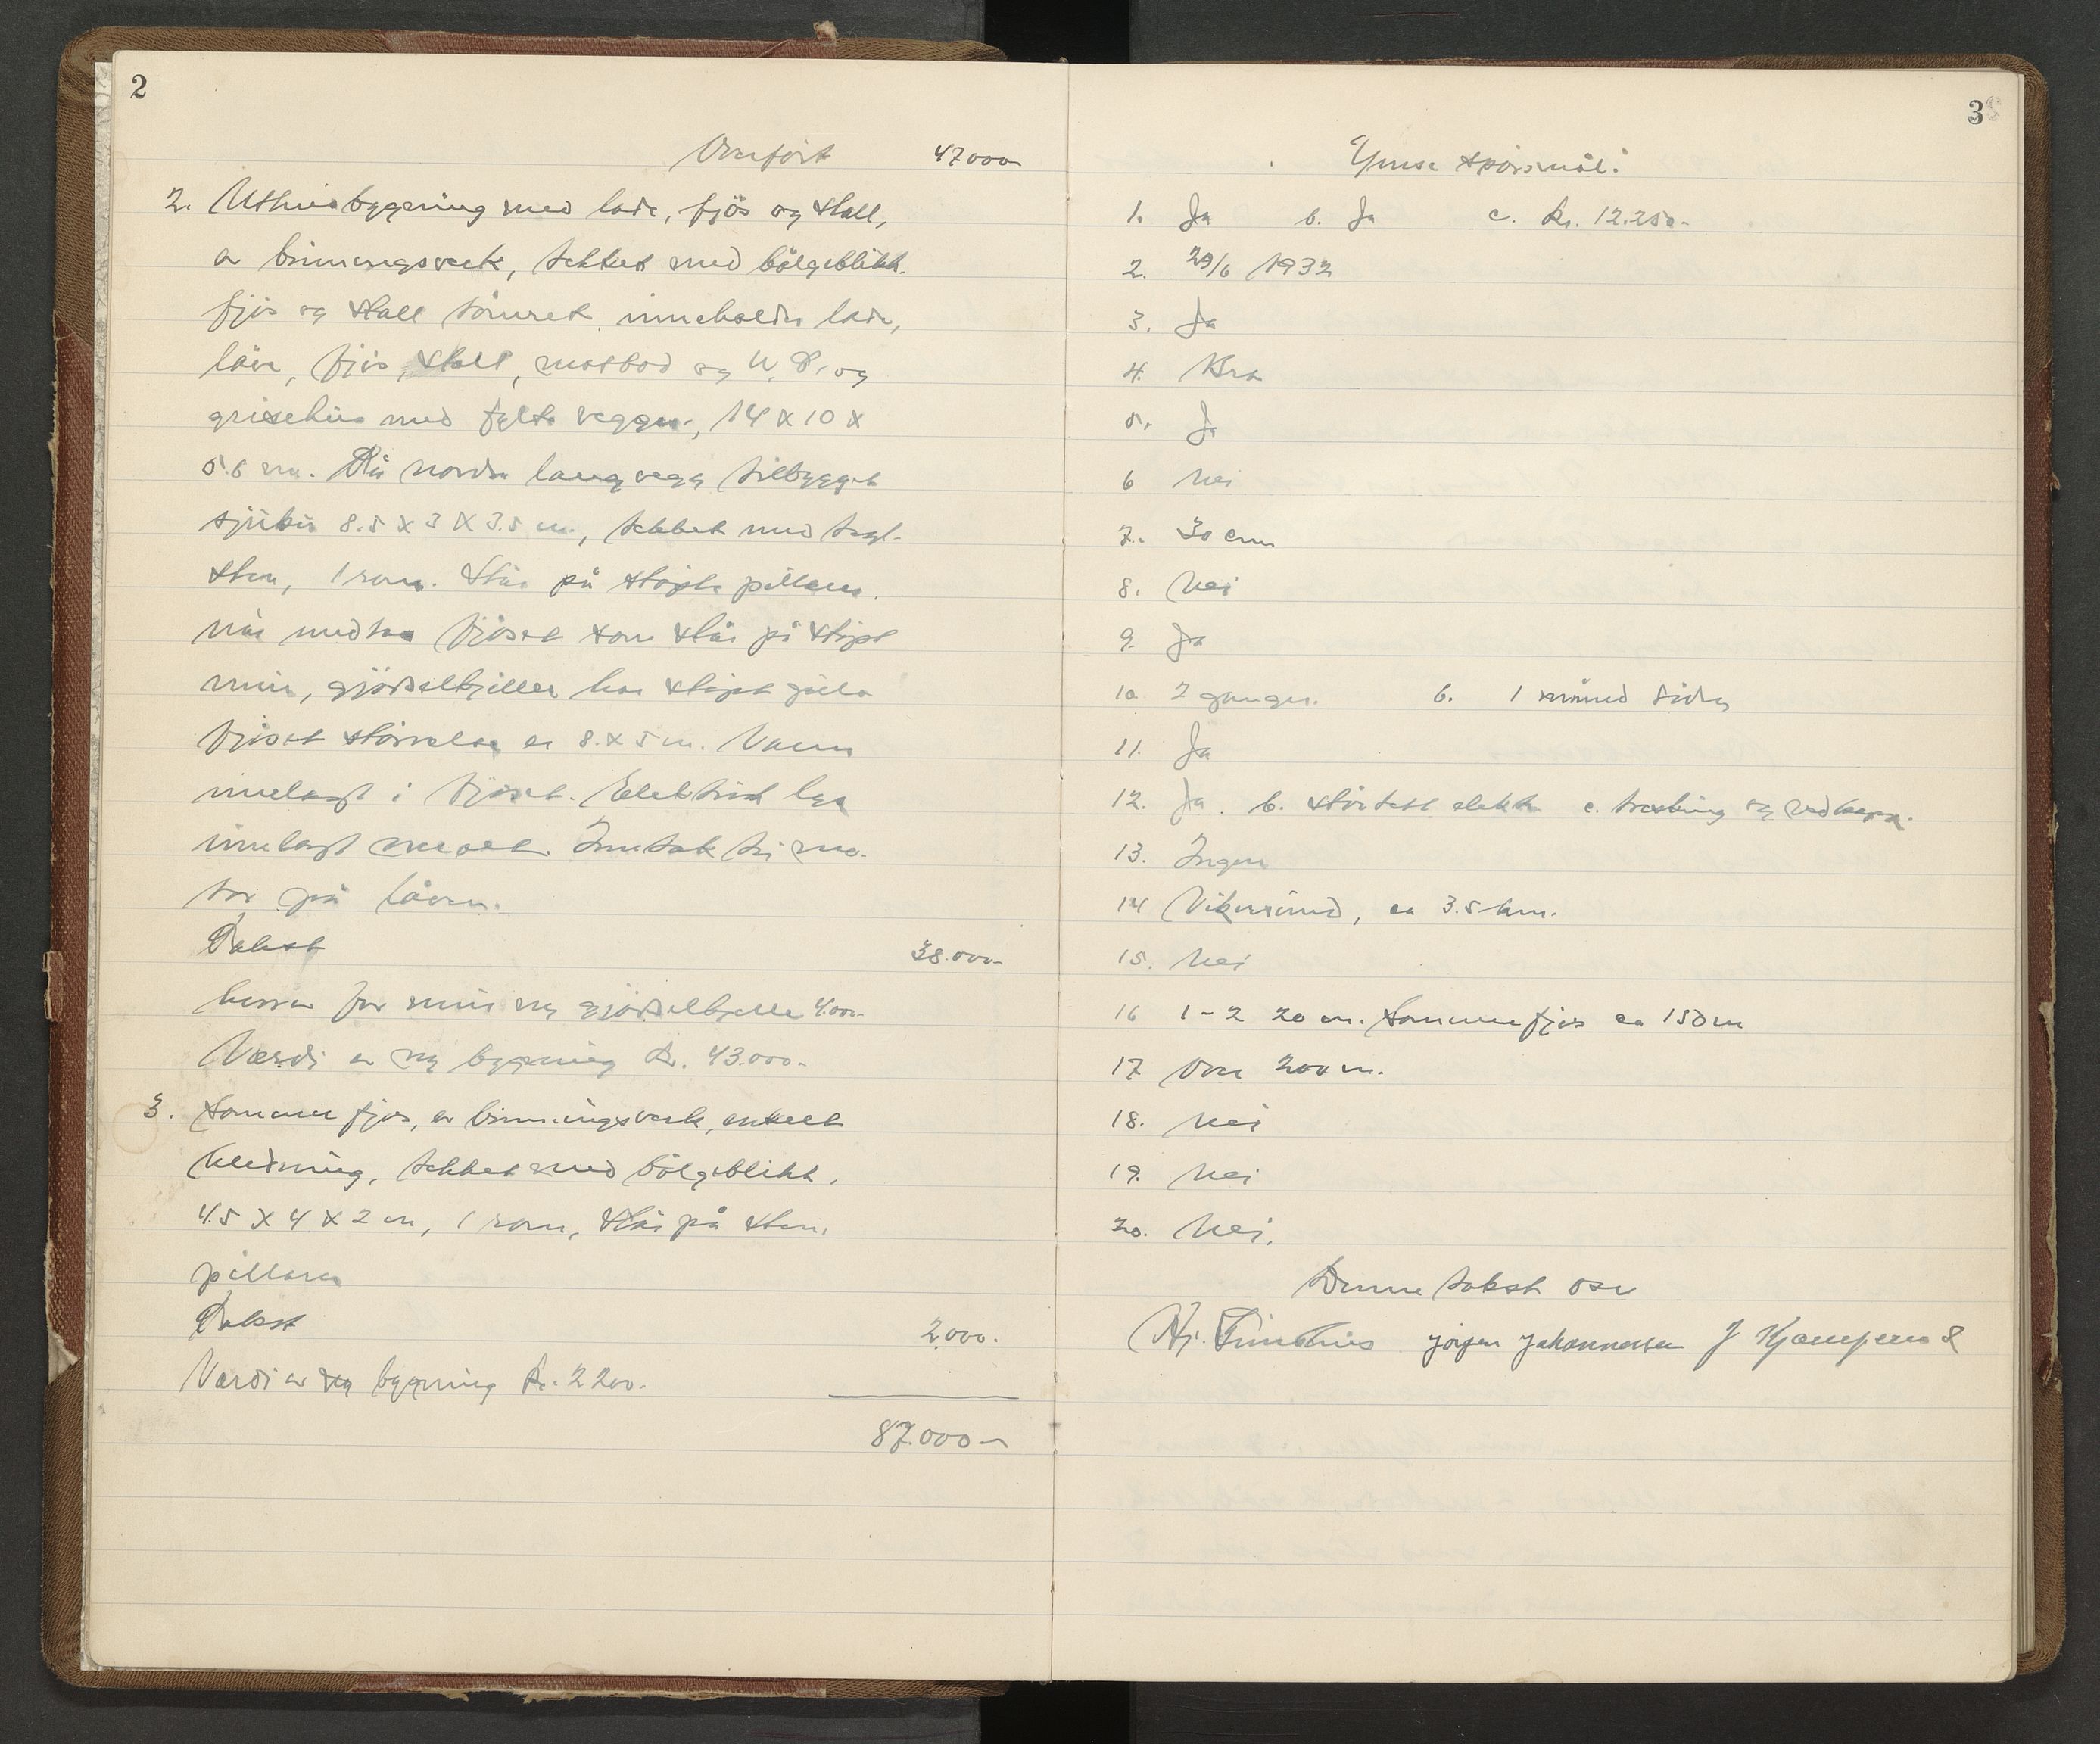 2
Overført 47000-
2. Uthusbygning med lade, fjös og stall,
av binningsverk, tekket med bölgeblikk.
fjös og stall tömret, inneholder lade,
låve, fjös, stall, matbod og W.C. og
grisehus med fylte vegger, 14 x 10 x
5.6 m. På nordre langvegg tilbygget
skjul 8.5 x 3 x 3.5 m., tekket med tegl-
sten, 1 rom. Står på stöpte pillarer.
når medtas fjöset som står på stöpt
mur, gjödselkjeller har stöpt gulv
fjöset störrelse er 8 x 5 m. Vann
innlagt i fjöset. Elektrisk lys
innlagt overalt. Inntak for mo-
tor på låven.
Takst 38.000-
herav for mur og gjödselkjeller 4.000-
Værdi av ny bygning kr. 43.000-
3. Sommerfjös, av binningsverk, enkelt
kledning, tekket med bölgeblikk,
4.5 x 4 x 2 m, 1 rom, står på sten-
pillarer
Takst 2.000.
Værdi av ny bygning kr. 2200.
87.000-
3
Ymse spörsmål:
1. Ja b. Ja c. kr. 12.250-
2. 29/6 1932
3. Ja
4. Bra
5. Ja
6 Nei
7. 30 cm
8. Nei
9. Ja
10 2 ganger. b. 1 måned siden
11. Ja
12. Ja. b. elektr c. tresking og vedkapp.
13. Ingen
14 Vikersund, ca 3.5 km.
15. Nei
16 1-2 20 m. Sommerfjös ca 150 m
17 Over 200 m.
18. Nei
19. Nei
20. Nei.
Denne takst osv
Jörgen Johannessen